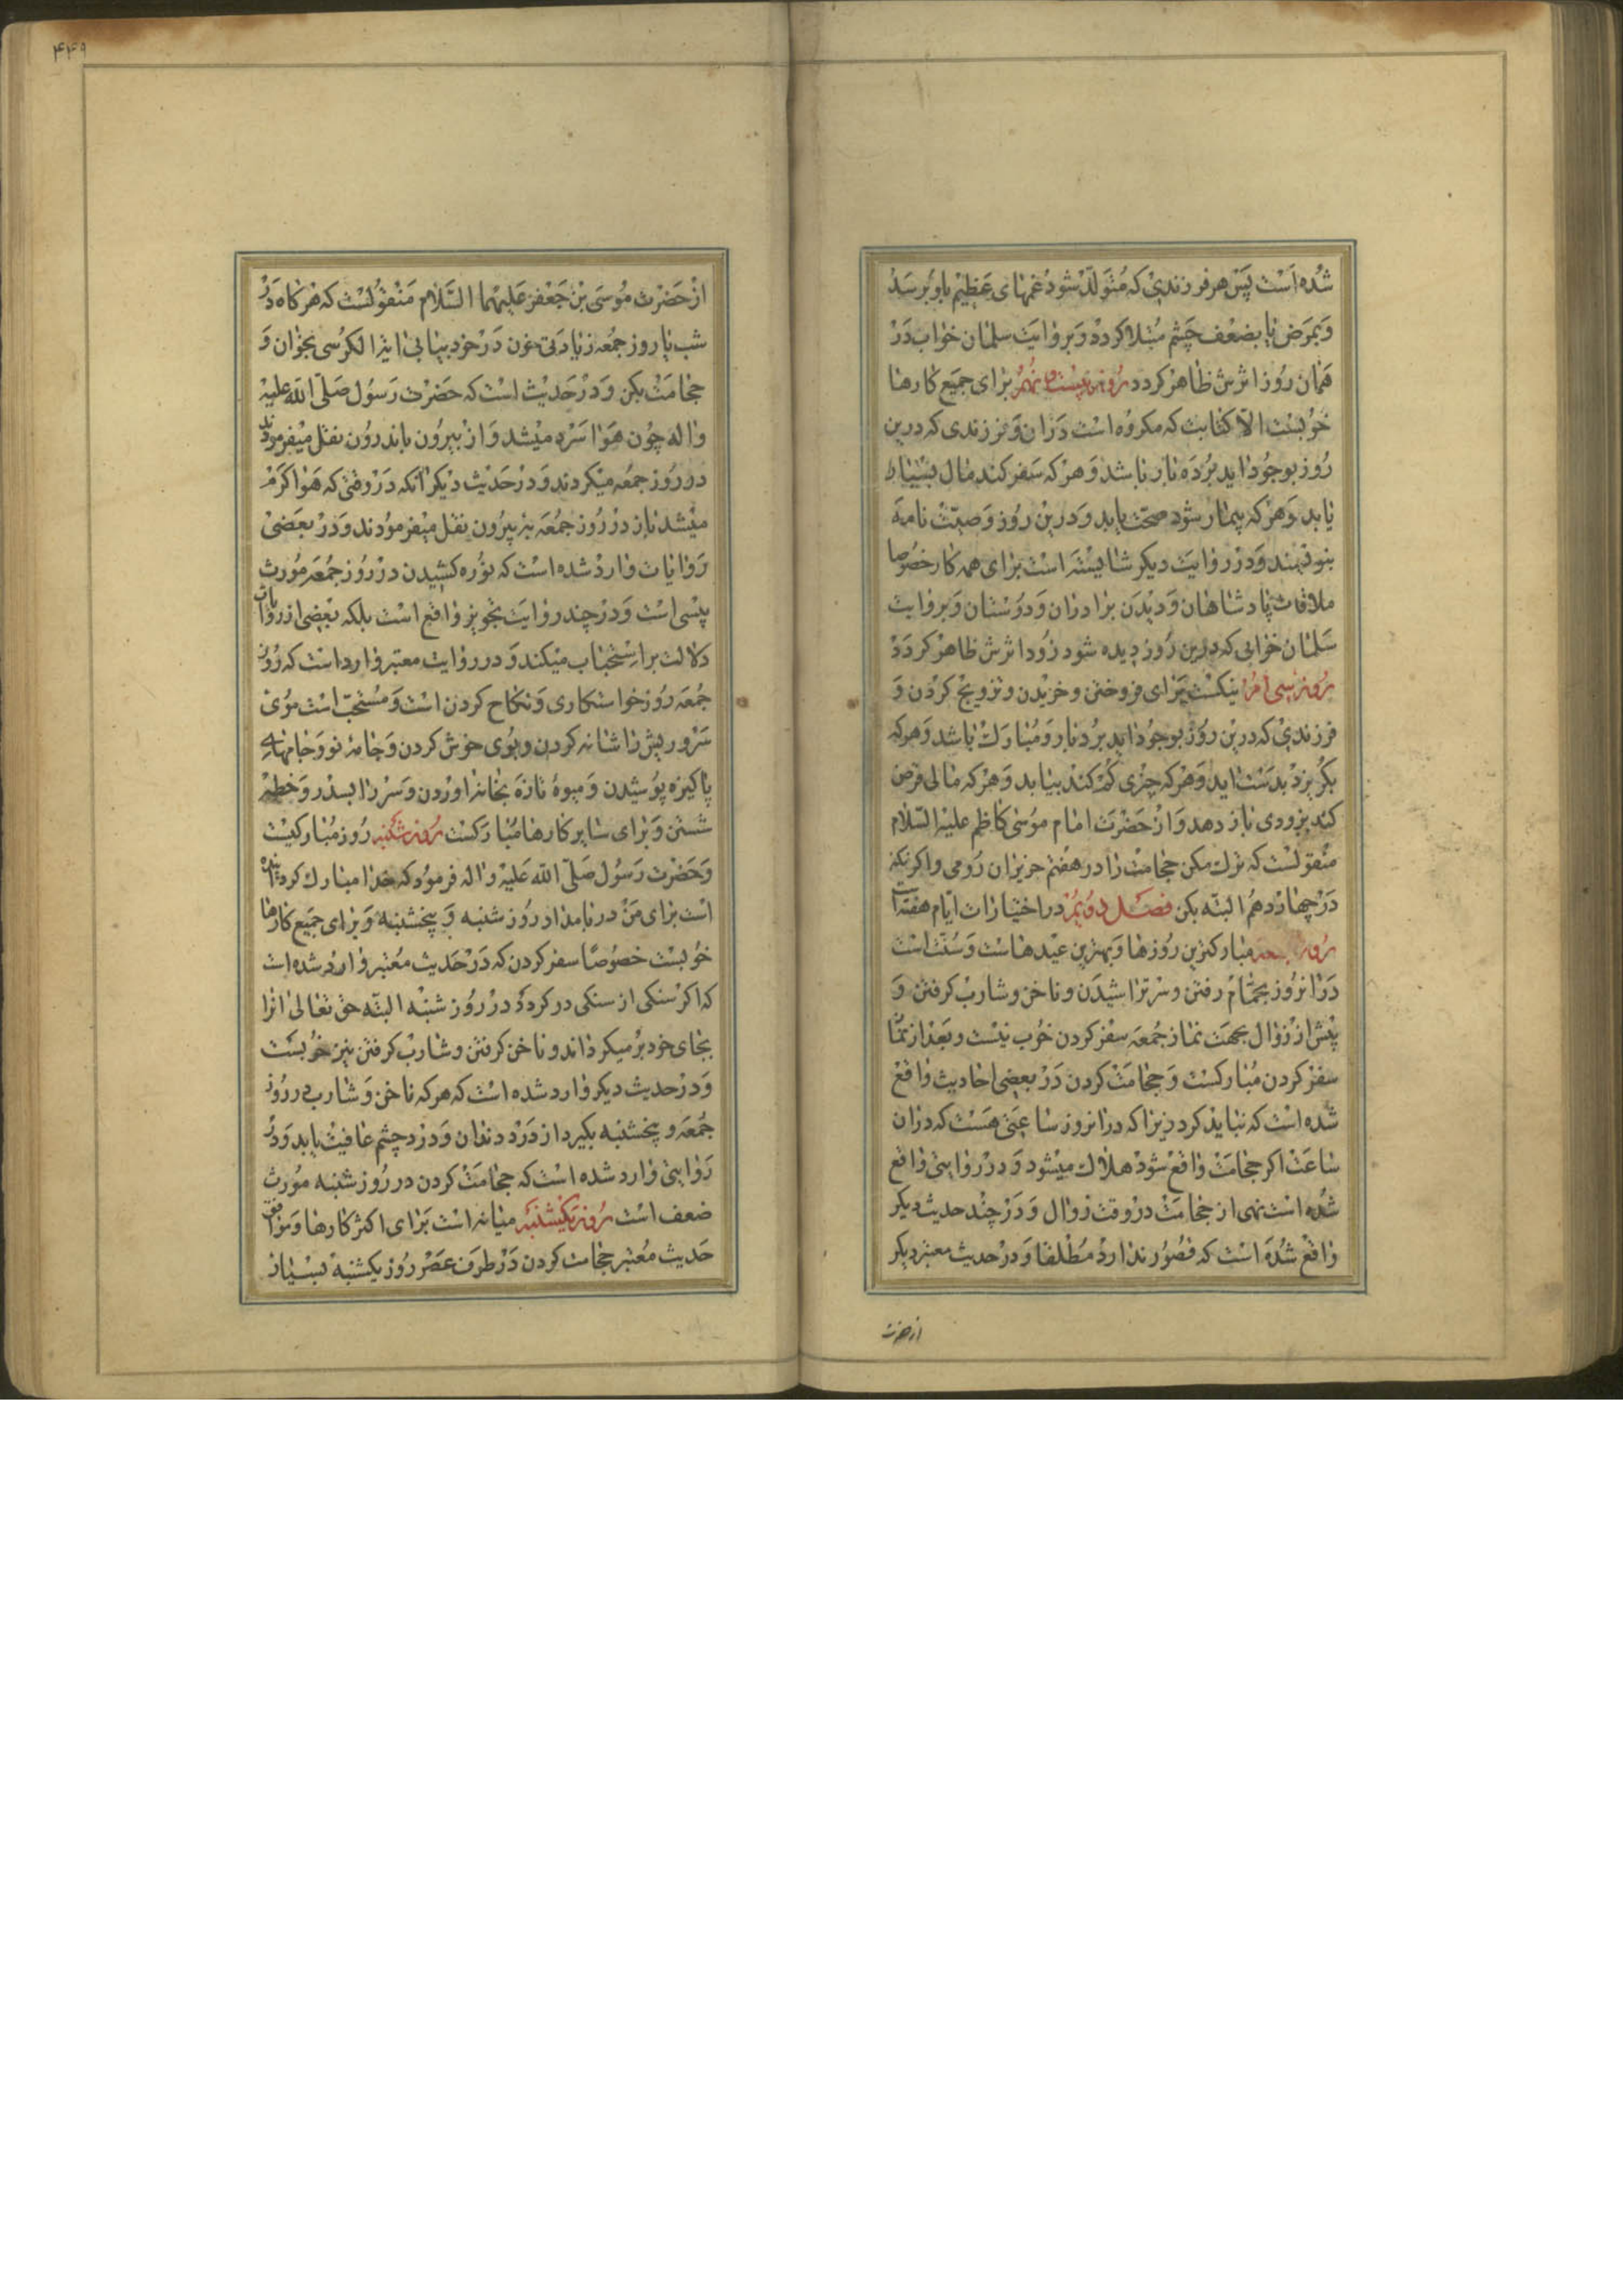 شده است پس هر فرزندی که متولد شود غمهای عظیم باو برسد
و بمرض یا بضعف چشم مبتلا کردد و بروایت سلمان خواب در
همان روز اثرش ظاهر کردد روز بیست و نهم برای جمیع کارها
خوبست الا کتابت که مکروه است در ان و فرزندی که درین
روز بوجود اید بردبار باشد و هر که سفر کند مال بسیار
یابد و هر که بیمار شود صحت یابد و درین روز وصیت نامه
بنویسند و در روایت دیکر شایسته است برای همه کار خصوصا
ملاقات پادشاهان و دیدن برادران و دوستان و بروایت
سلمان خوابی که درین روز دیده شود زود اثرش ظاهر کردد
روز سی ام نیکست برای فروختن و خریدن و تزویج کردن و
فرزندی که درین روز بوجود اید بردبار و مبارک باشد و هر که
بکریزد بدست اید و هر که چیزی کم کند بیابد و هر که مالی قرض
کند بزودی باز دهد و از حضرت امام موسی کاظم علیه السلام
منقولست که ترک مکن حجامت را در هفتم حزیران رومی و اکر نکنی
در چهاردهم البته بکن فصل دویم در اختیارات ایام هفته است
روز جمعه مبارکترین روزها و بهترین عیدهاست و سنت است
در انروز بحمام رفتن و سر تراشیدن و ناخن و شارب کرفتن و
پیش از زوال بجهت نماز جمعه سفر کردن خوب نیست و بعد از نماز
سفر کردن مبارکست و حجامت کردن در بعضی احادیث واقع
شده است که نباید کرد زیرا که در انروز ساعتی هست که در ان
ساعت اکر حجامت واقع شود هلاک میشود و در روایتی واقع
شده است نهی از حجامت در وقت زوال و در چند حدیث دیکر
واقع شده است که قصور ندارد مطلقا و در حدیث معتبر دیکر
از حضرت
۴۴۹
از حضرت موسی بن جعفر علیهما السلام منقولست که هر کاه در
شب یا روز جمعه زیادتی خون در خود بیابی ایة الکرسی بخوان و
حجامت بکن و در حدیث است که حضرت رسول صلی الله علیه
واله چون هوا سرد میشد و از بیرون باندرون نقل میفرمودند
در روز جمعه میکردند و در حدیث دیکر انکه در وقتی که هوا کرم
میشد باز در روز جمعه به بیرون نقل میفرمودند و در بعضی
روایات وارد شده است که نوره کشیدن در روز جمعه مورث
پیسی است و در چند روایت تجویز واقع است بلکه بعضی از روایات
دلالت بر استحباب میکند و در روایت معتبر وارد است که روز
جمعه روز خواستکاری و نکاح کردن است و مستحب است موی
سر و ریش را شانه کردن و بوی خوش کردن و جامه نو و جامهای
پاکیزه پوشیدن و میوه تازه بخانه اوردن و سر را بسدر و خطمی
شستن و برای سایر کارها مبارکست روز شنبه روز مبارکیست
و حضرت رسول صلی الله علیه واله فرمود که خدا مبارک کردانیده
است برای من در بامداد روز شنبه و پنجشنبه و برای جمیع کارها
خوبست خصوصا سفر کردن که در حدیث معتبر وارد شده است
که اکر سنکی از سنکی در کردد در روز شنبه البته حق تعالی انرا
بجای خود بر میکرداند و ناخن کرفتن و شارب کرفتن نیز خوبست
و در حدیث دیکر وارد شده است که هر که ناخن و شارب در روز
جمعه و پنجشنبه بکیرد از درد دندان و درد چشم عافیت یابد و در
روایتی وارد شده است که حجامت کردن در روز شنبه مورث
ضعف است روز یکشنبه میانه است برای اکثر کارها و موافق
حدیث معتبر حجامت کردن در طرف عصر روز یکشنبه بسیار